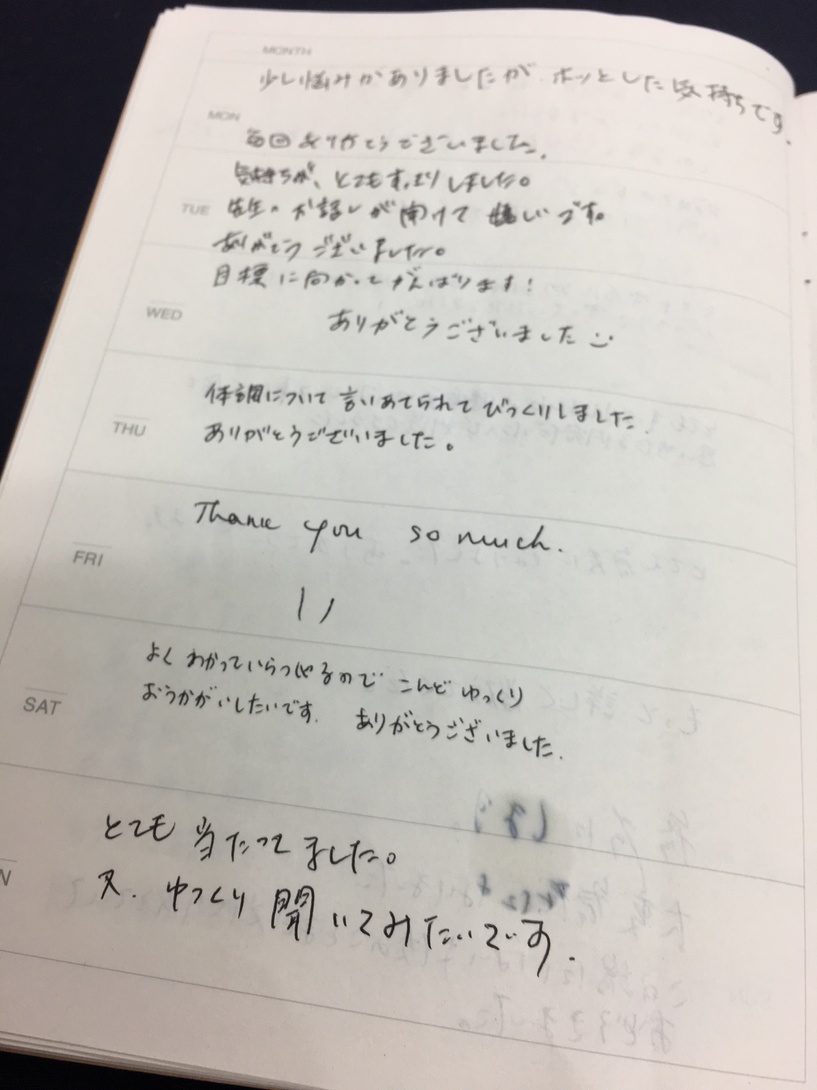 MONTH
少し悩みがありましたが、ホッとした気持ちです。
MON
毎回ありがとうございました。
気持ちが、とてもすっきりしました。
TUE
先生のお話しが聞けて嬉しいです。
ありがとうございました。
目標に向かってがんばります!
WED
ありがとうございました
THU
体調について言いあてられてびっくりしました!
ありがとうございました。
Thank you so much.
FRI
よくわかっていらっしゃるので こんどゆっくり
SAT
おうかがいしたいです. ありがとうございました.
とても当たってました。
N
又、ゆっくり聞いてみたいです.